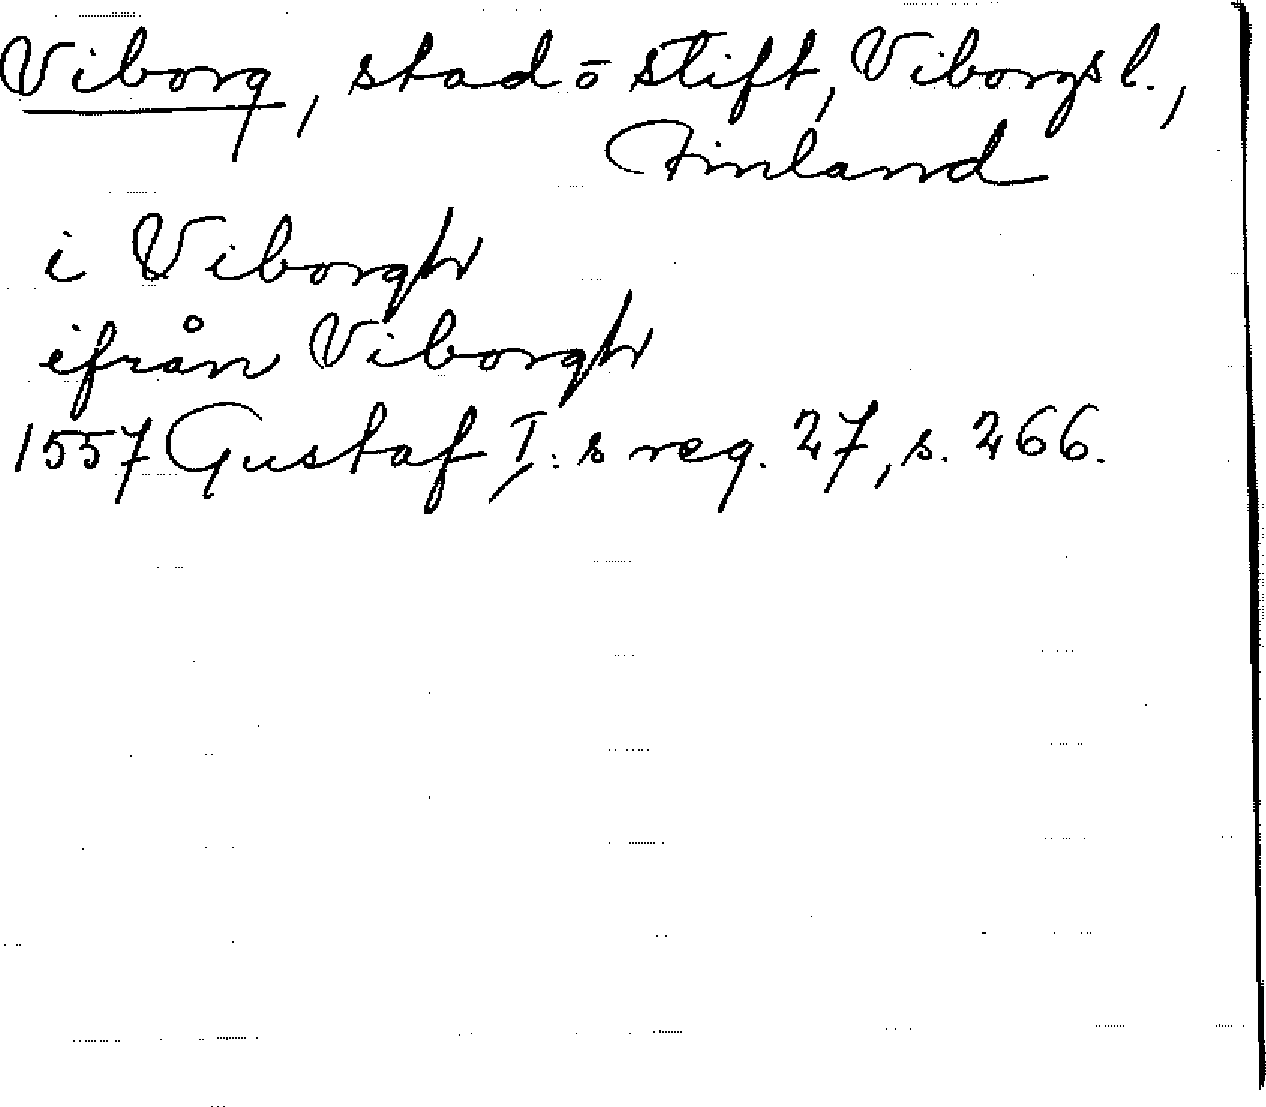 Viborg, stad ō stift, Viborgs l.,
Finland
i Viborgh
ifrån Viborgh
1557 Gustaf I:s reg. 27, s. 266.